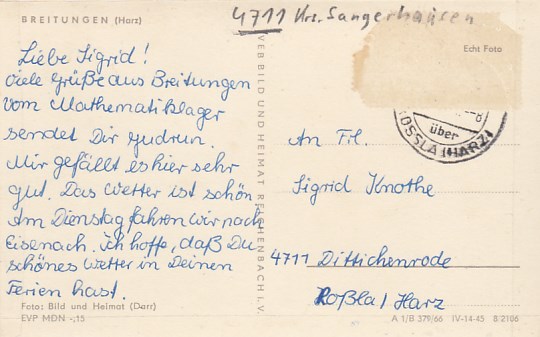 BREITUNGEN (Harz)
4711 Krs. Sangerhausen
Echt Foto
Liebe Sigrid!
viele Grüße aus Breitungen
vom Mathematiklager
sendet Dir Gudrun.
Mir gefällt es hier sehr
gut. Das Wetter ist schön
Am Dienstag fahren wir nach
Eisenach. ich hoffe, daß Du
schönes Wetter in Deinen
Ferien hast.
Foto: Bild und Heimat (Darr)
EVP MDN -,15
VEB BILD UND HEIMAT REICHENBACH I. V.
über
ROSSLA (HARZ)
An Frl.
Sigrid Knothe
4711 Dittichenrode
Roßla/ Harz
A 1/B 379/66 IV-14-45 B 2106